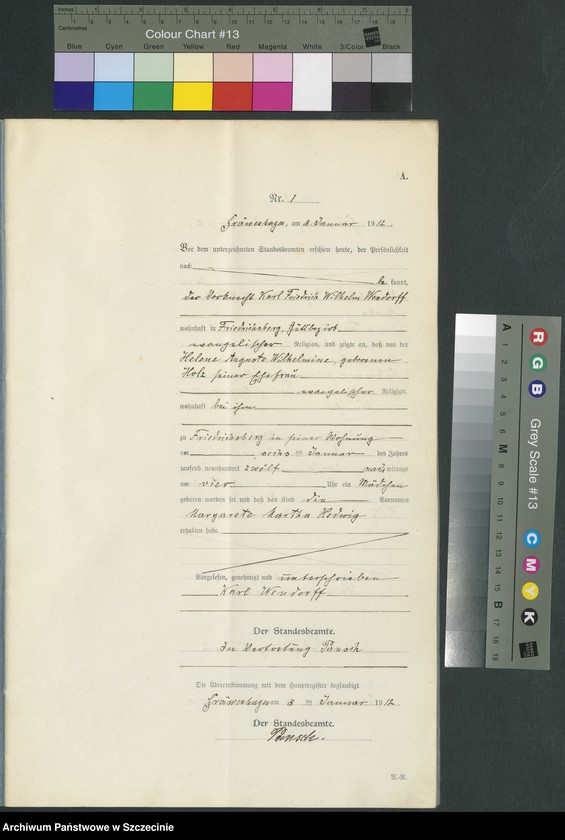 Inches
Centimetres
Colour Chart #13
Blue Cyan Green Yellow Red Magenta White 3/Color Black
A.
Nr. 1
am 8. Januar 1912.
Vor dem unterzeichneten Standesbeamten erschien heute, der Persönlichkeit
nach
be kannt,
der Vorknecht Karl Friedrich Wilhelm Wendorff
wohnhaft in Friedrichsberg, Gutsbezirk
evangelischer Religion, und zeigte an, daß von der
Helene Auguste Wilhelmine, geborenen
Holz seiner Ehefrau
evangelischer Religion,
wohnhaft bei ihm
zu Friedrichsberg in seiner Wohnung
am sechs ten Januar des Jahres
tausend neunhundert zwölf nach mittags
um vier Uhr ein Mädchen
geboren worden sei und daß das Kind die Vornamen
Margarete Martha Hedwig
erhalten habe.
Vorgelesen, genehmigt und unterschrieben
Karl Wendorff
Der Standesbeamte.
In Vertretung
Die Übereinstimmung mit dem Hauptregister beglaubigt
am 8 ten Januar 1912.
Der Standesbeamte.
Grey Scale #13
A 1 2 3 4 5 6 M 8 9 10 11 12 13 14 15 B 17 18 19
R
G
B
C
M
Y
K
Archiwum Państwowe w Szczecinie